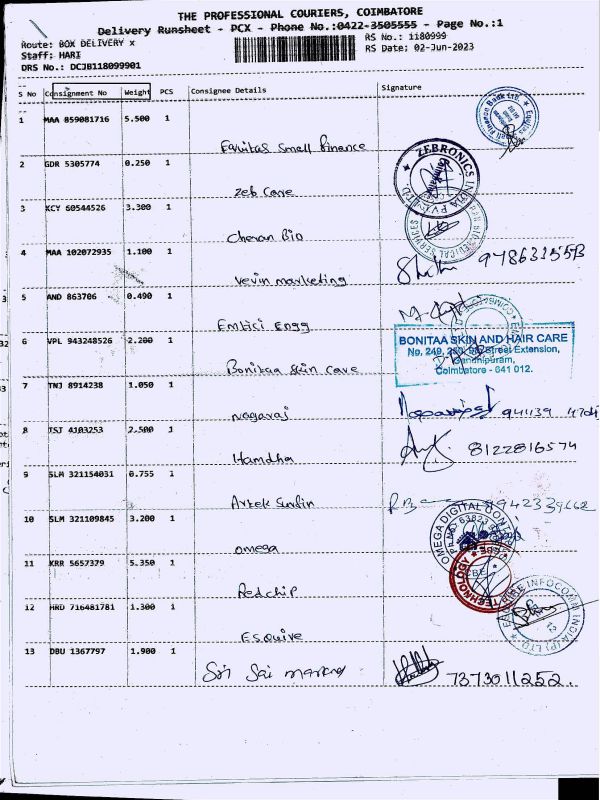 THE PROFESSIONAL COURIERS, COIMBATORE
Delivery Runsheet - PCX - Phone No.:0422-3505555 - Page No.:1
Route: BOX DELIVERY x RS No.: 1180999
Staff: HARI RS Date: 02-Jun-2023
DRS No.: DCJB118099901
S No Consignment No Weight PCS Consignee Details Signature
1 MAA 859081716 5.500 1
Equitas Small Finance
2 GDR 5305774 0.250 1
ZEBRONICS INDIA PVT LTD
Zeb Care
3 KCY 60544526 3.300 1
Cheran Bio
4 MAA 102072935 1.100 1
9786315553
Vevin marketing
5 AND 863706 0.490 1
Emtici Engg
6 VPL 943248526 2.200 1
BONITAA SKIN AND HAIR CARE
Street Extension,
Gandhipuram,
Coimbatore - 641 012.
Bonitaa Skin Care
7 TNJ 8914238 1.050 1
94439
Nagaraj
8 TSJ 4103253 2.500 1
8122816574
Hamdha
9 SLM 321154031 0.755 1
Artek Surfin
10 SLM 321109845 3.200 1
OMEGA DIGITAL
Omega
11 KRR 5657379 5.350 1
TECHNOLOGY
Redchip
12 HRD 716481781 1.300 1
ESQUIRE INFOCOMM INDIA (P) LTD
Esquire
13 DBU 1367797 1.900 1
Sri Sai marketing
7373011252.